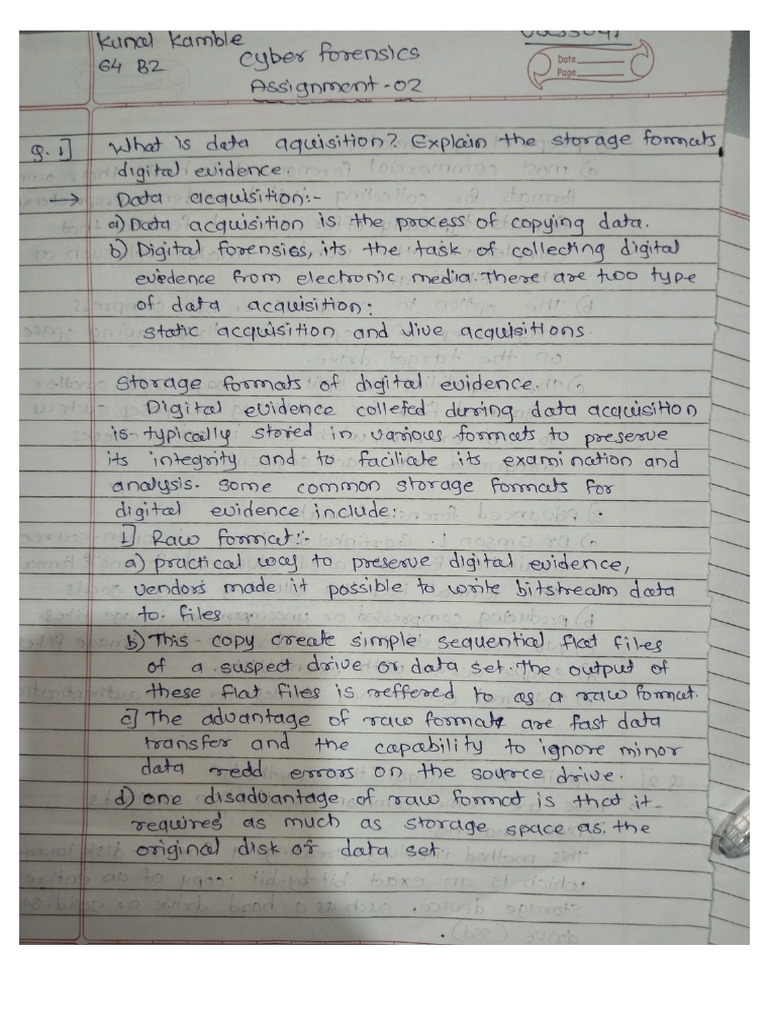 Kunal Kamble
64 B2
Cyber forensics
Assignment-02
Date
Page
Q.1] What is data aquisition? Explain the storage formats
digital evidence.
→ Data acquisition:-
a) Data acquisition is the process of copying data.
b) Digital forensics, its the task of collecting digital
evidence from electronic media. There are two type
of data acquisition:
static acquisition and live acquisitions.
Storage formats of digital evidence.
- Digital evidence colleted during data acquisition
is typically stored in various formats to preserve
its integrity and to faciliate its examination and
analysis. Some common storage formats for
digital evidence include:
1] Raw format:-
a) practical way to preserve digital evidence,
vendors made it possible to write bitstream data
to files
b) This copy create simple sequential flat files
of a suspect drive or data set. The output of
these flat files is reffered to as a raw format.
c] The advantage of raw format are fast data
transfer and the capability to ignore minor
data redd errors on the source drive.
d) one disadvantage of raw format is that it
requires as much as storage space as the
original disk or data set.